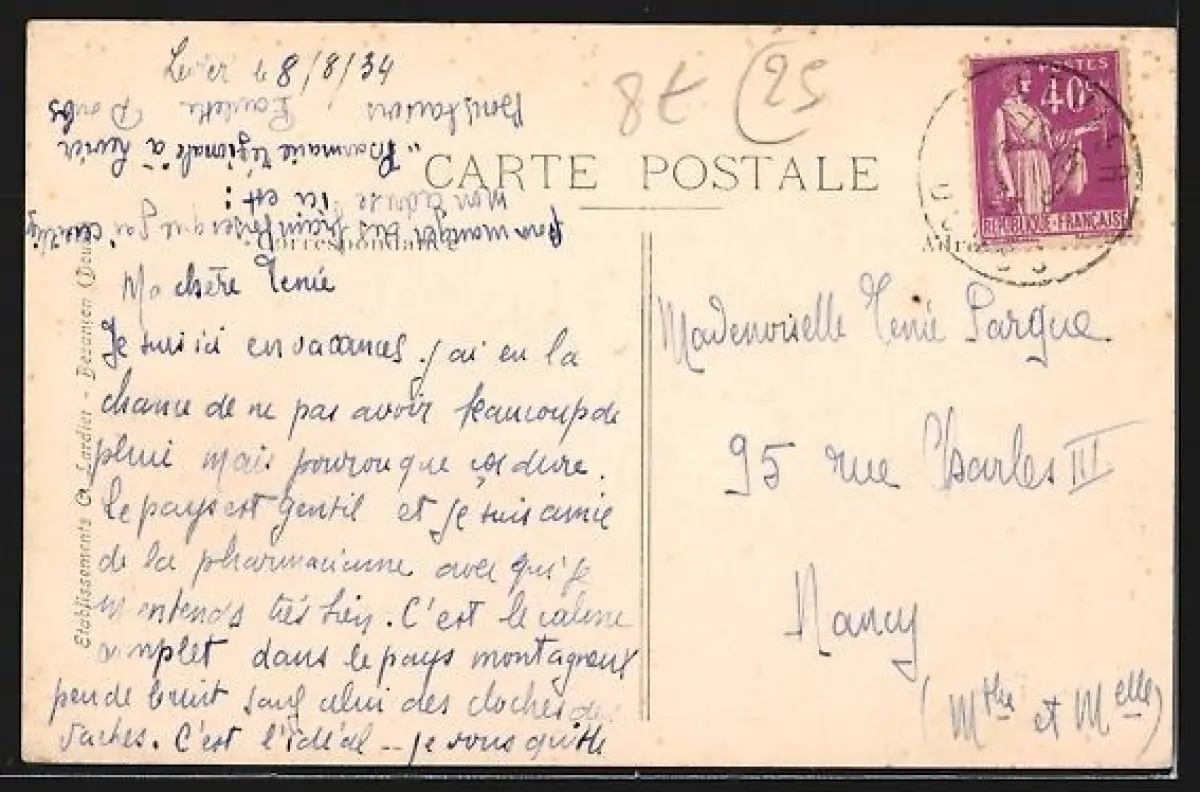 Levier le 8/8/34
8t (25
POSTES
40c
REPUBLIQUE-FRANÇAISE
CARTE POSTALE
Correspondance
Adresse
Ma chère Tenie
Je suis ici en vacances. j'ai eu la
chance de ne pas avoir beaucoup de
pluie mais pourvu que ça dure.
Le pays est gentil et je suis amie
de la pharmacienne avec qui je
m'entends très bien. C'est le calme
complet dans le pays montagneux
peu de bruit sauf celui des cloches des
vaches. C'est l'idéal -- je vous quitte
pour manger
Mon adresse ici est :
Pharmacie Régionale à Levier
Paulette Doubs
Mademoiselle Tenie Pargue
95 rue Charles III
Nancy
(Mthe et Melle)
Etablissements C. Lardier - Besançon (Doubs